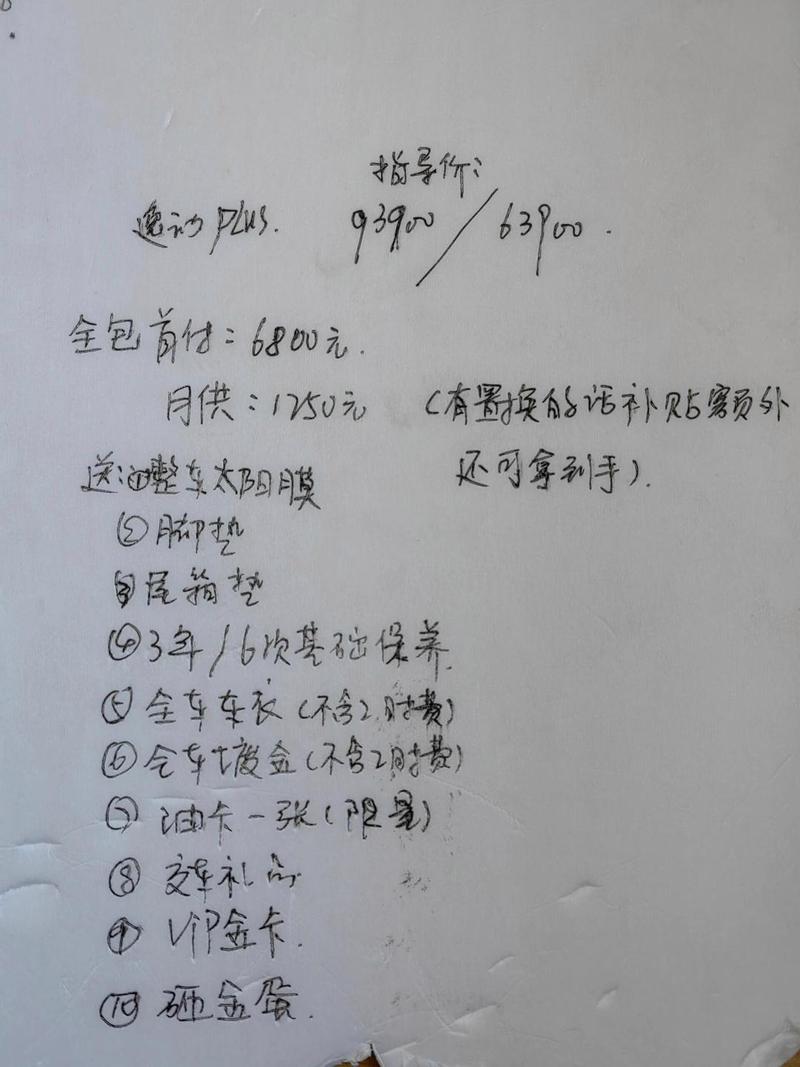 指导价:
逸动PLUS. 93900/63900.
全包首付:6800元.
月供:1250元 (有置换的话补贴额外
还可拿到手).
送:①整车太阳膜
②脚垫
③尾箱垫
④3年/6次基础保养.
⑤全车车衣(不含工时费)
⑥全车镀金(不含工时费)
⑦油卡一张(限量)
⑧交车礼品
⑨VIP金卡.
⑩砸金蛋.